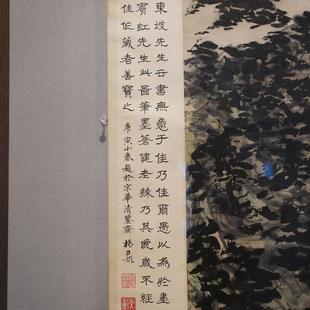 東坡先生云書無意于佳乃佳爾愚以為於畫
賓虹先生此圖筆墨蒼健老辣乃其晚歲不經
佳作藏者善寶之
庚寅小春題於京華清鑒齋 楊